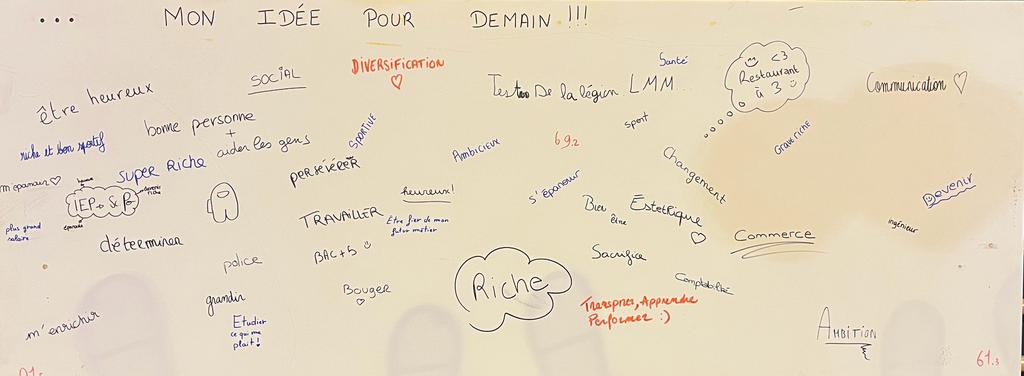 ... MON IDÉE POUR DEMAIN !!!
être heureux
SOCIAL
DIVERSIFICATION
De la légion LMM
Santé
<3
Restaurant
à 3
Communication
riche et bon sportif
bonne personne
+
aider les gens
SPORTIVE
Ambicieux
69.2
sport
Changement
Grave riche
m'epanouir
super Riche
persévérer
heureux!
s'épanouir
Devenir
IEP
plus grand
salaire
déterminer
TRAVAILLER
Être fier de mon
futur métier
Bien
être
Estetique
Commerce
ingénieur
police
BAC+5
Sacrifice
grandir
Bouger
Riche
Comptabilité
m'enrichir
Etudier
ce qui me
plait!
Transpirer, Apprendre
Performer :)
AMBITION
61.3